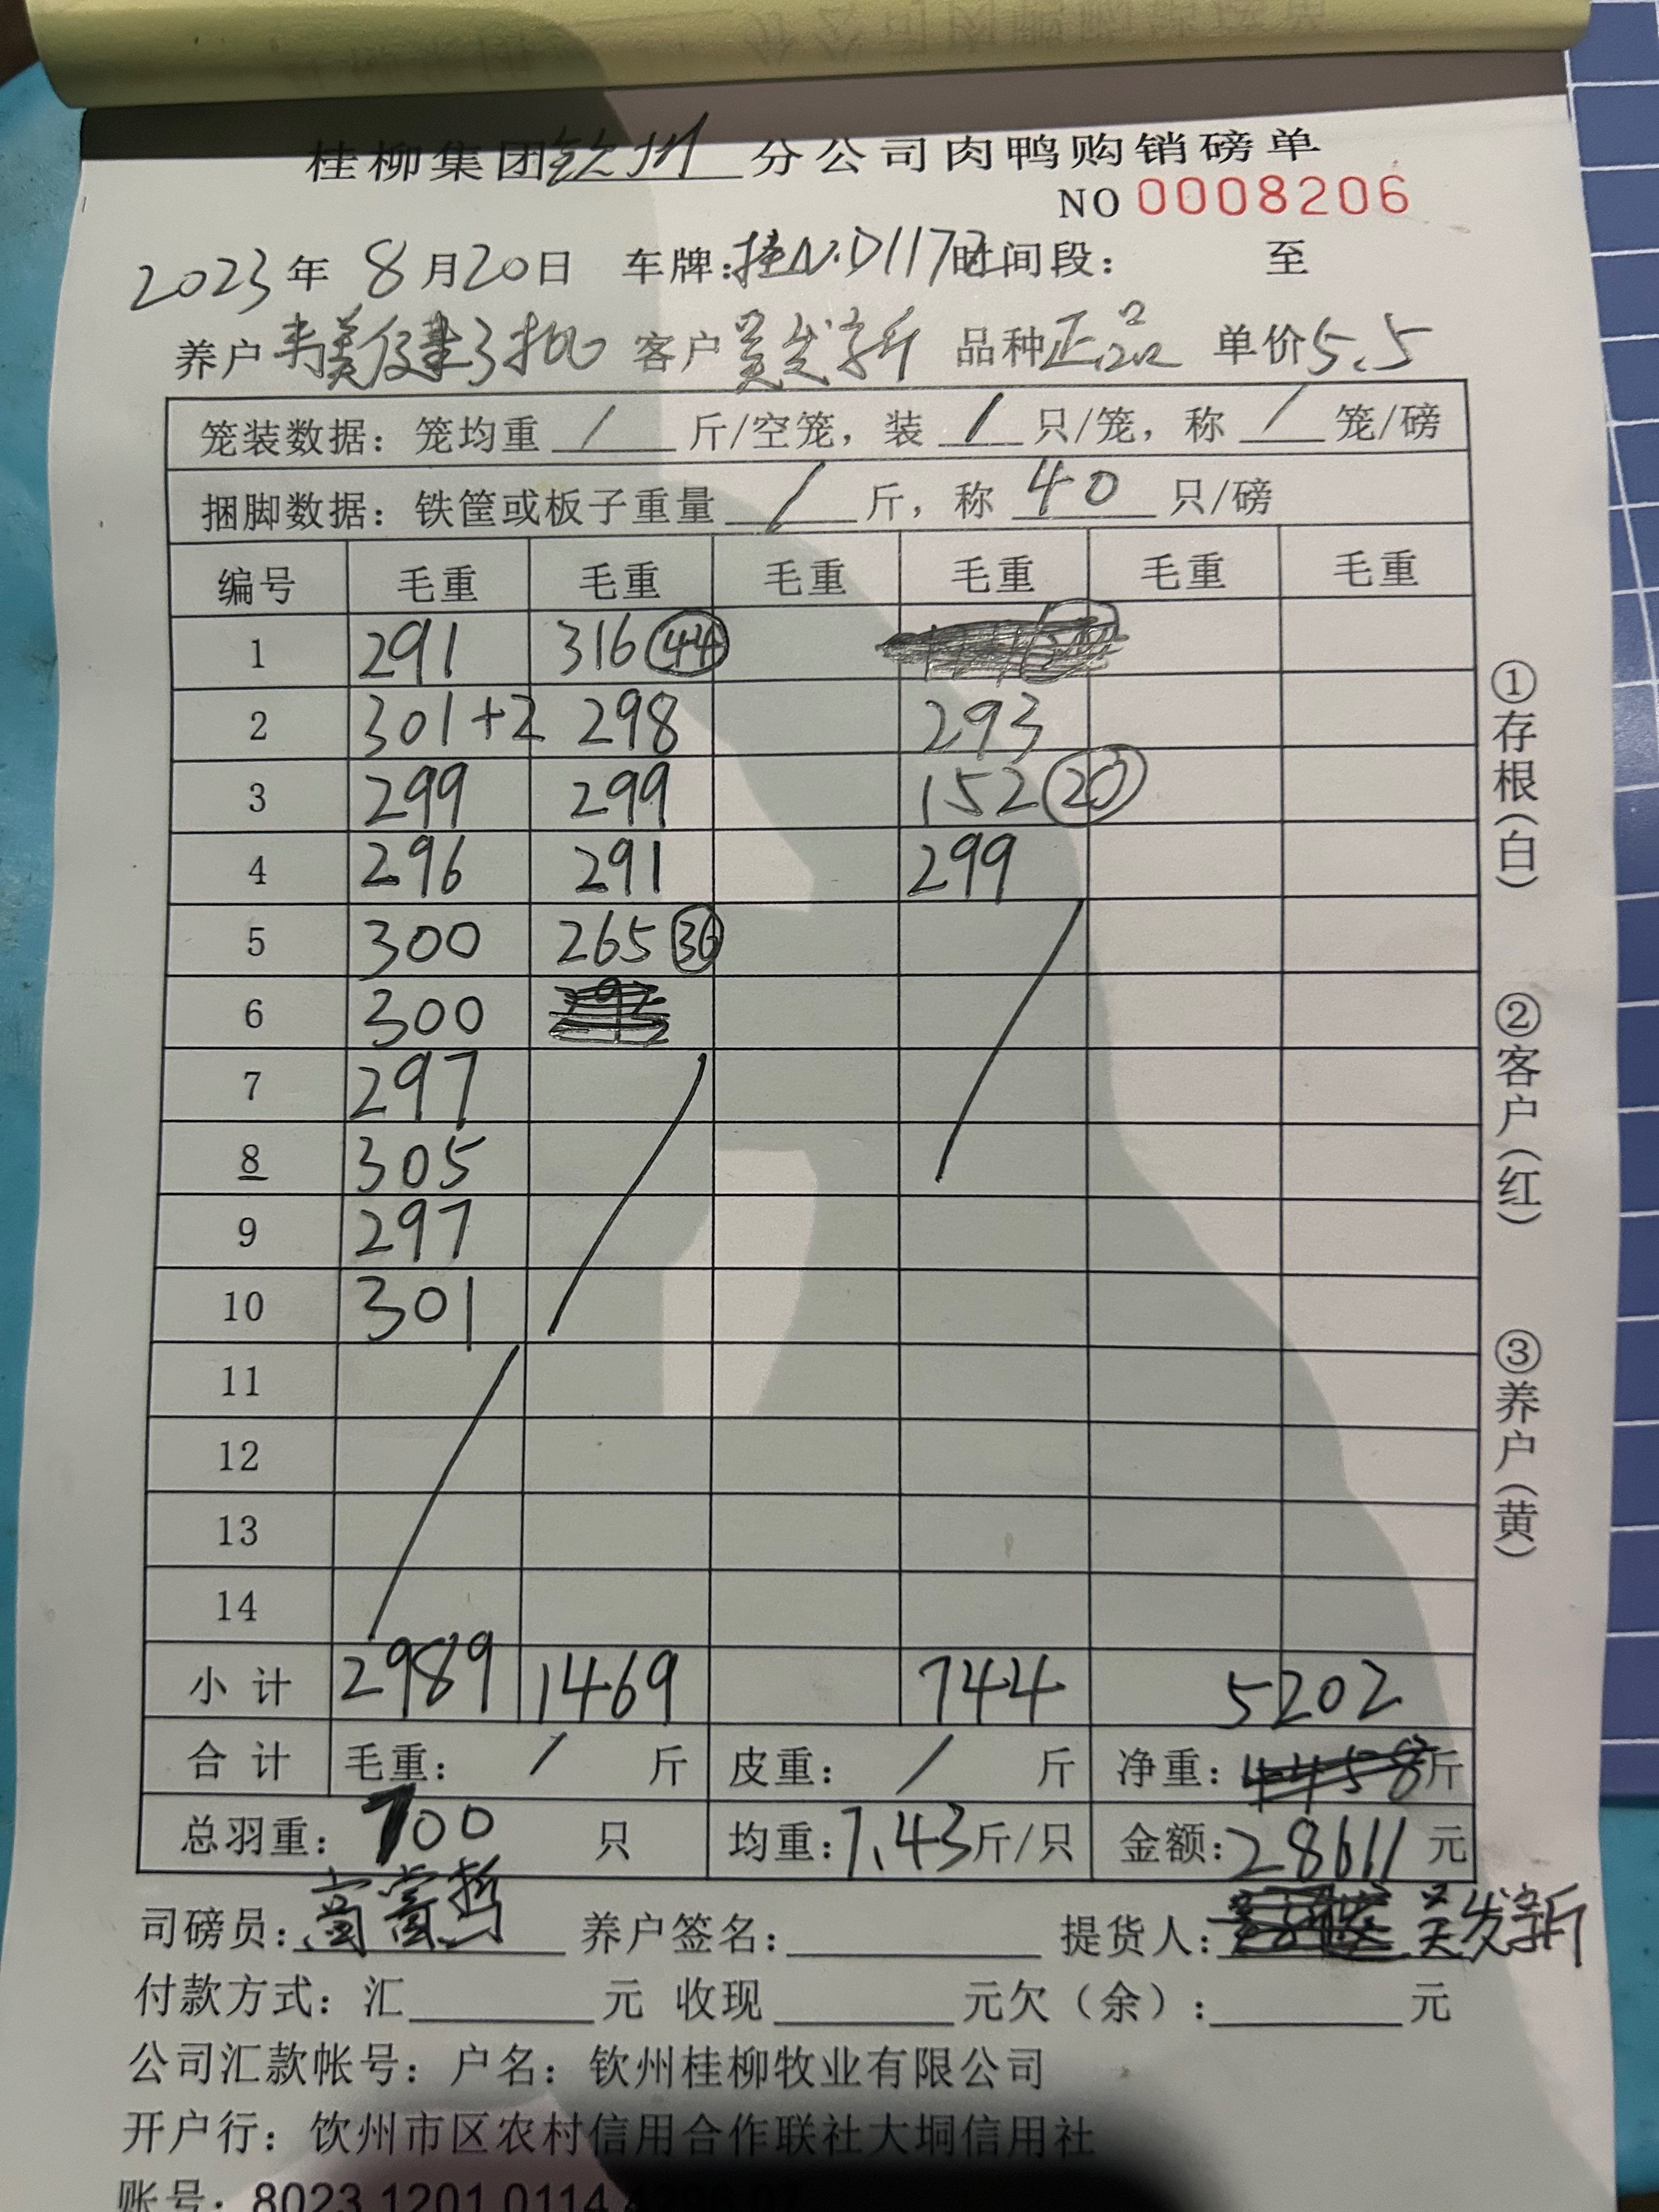 桂柳集团钦州分公司肉鸭购销磅单
NO 0008206
2023年 8月20日 车牌:桂N.D117 时间段: 至
养户 美健3批 客户 吴发新 品种 正品 单价 5.5
笼装数据: 笼均重 / 斤/空笼, 装 / 只/笼, 称 / 笼/磅
捆脚数据: 铁筐或板子重量 / 斤, 称 40 只/磅
编号 毛重 毛重 毛重 毛重 毛重 毛重
1 291 316 (44)
2 301+2 298 293
3 299 299 152 (20)
4 296 291 299
5 300 265 (36)
6 300
7 297
8 305
9 297
10 301
11
12
13
14
小计 2989 1469 744 5202
合计 毛重: / 斤 皮重: / 斤 净重: 4458 斤
总羽重: 700 只 均重: 7.43 斤/只 金额: 28611 元
司磅员: 养户签名: 提货人: 吴发新
付款方式: 汇 元 收现 元欠(余): 元
公司汇款帐号: 户名: 钦州桂柳牧业有限公司
开户行: 钦州市区农村信用合作联社大垌信用社
账号: 8023 1201 0114
①存根(白)
②客户(红)
③养户(黄)